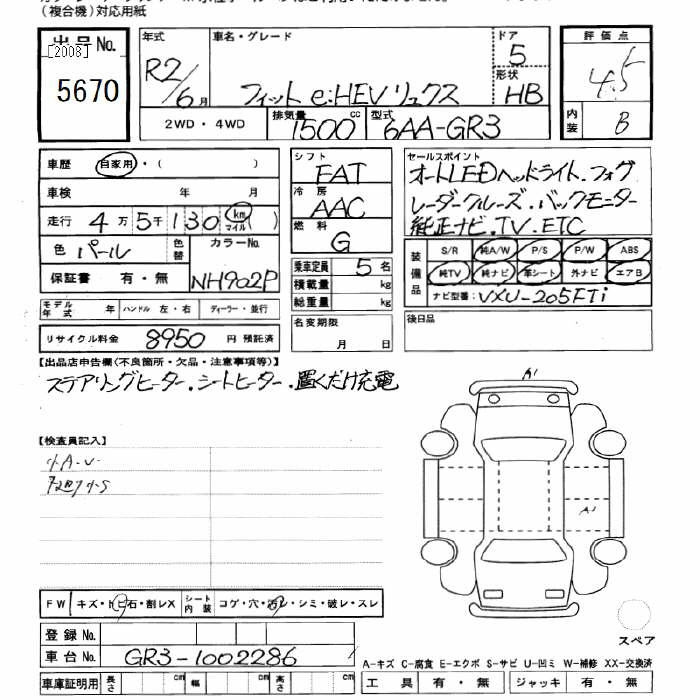 （複合機）対応用紙
出品No.
[2008]
5670
年式
R2/6月
車名・グレード
フィット e:HEV リュクス
ドア
5
形状
HB
評価点
4.5
内装
B
2WD・4WD
排気量
1500cc
型式
6AA-GR3
車歴 自家用・( )
車検 年 月
走行 4万5千130 km マイル ( )
色 パール
色替
カラーNo.
NH902P
保証書 有・無
モデル年式 年 ハンドル 左・右 ディーラー・並行
リサイクル料金 8950 円 預託済
シフト
FAT
冷房
AAC
燃料
G
乗車定員 5名
積載量 kg
総重量 kg
名変期限
月 日
セールスポイント
オートLEDヘッドライト.フォグ
レーダークルーズ.バックモニター
純正ナビ.TV.ETC
装備品
S/R 純A/W P/S P/W ABS
純TV 純ナビ 革シート 外ナビ エアB
ナビ型番: VXU-205FTi
後日品
【出品店申告欄(不良箇所・欠品・注意事項等)】
ステアリングヒーター.シートヒーター.置くだけ充電
【検査員記入】
小A.U
A1
A1
FW キズ・トビ石・割レX シート内装 コゲ・穴・汚レ・シミ・破レ・スレ
スペア
登録No.
車台No. GR3-1002286
A-キズ C-腐食 E-エクボ S-サビ U-凹ミ W-補修 XX-交換済
車庫証明用 長さ cm 幅 cm 高さ cm
工具 有・無 ジャッキ 有・無